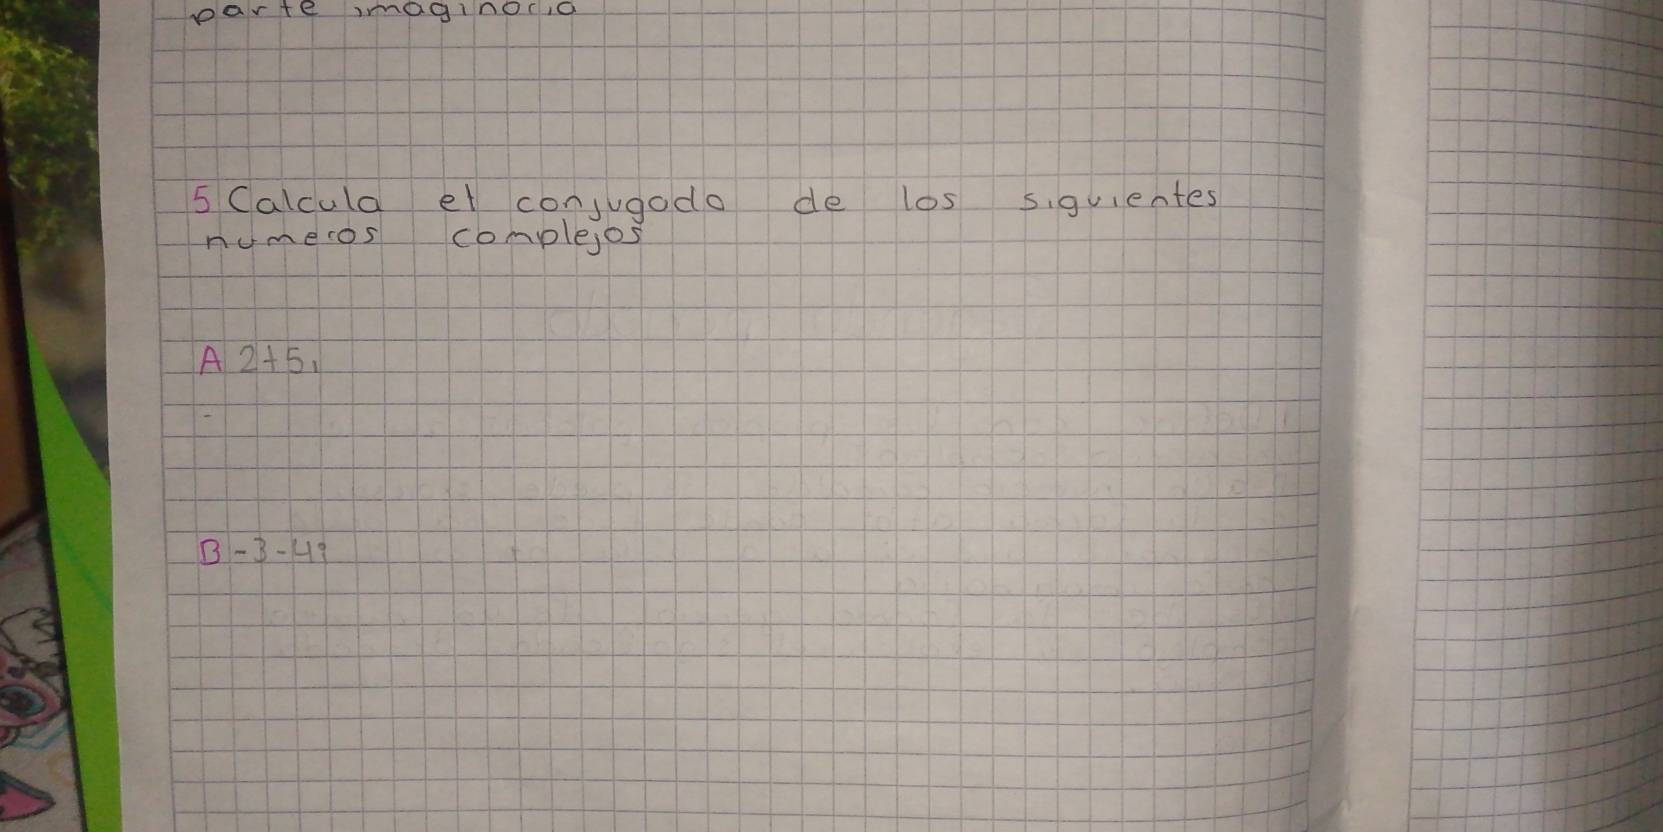 parte imaginaria
5 Calcula el conjugado de los siguientes
numeros complejos
A 2+5i
-
B -3-4i